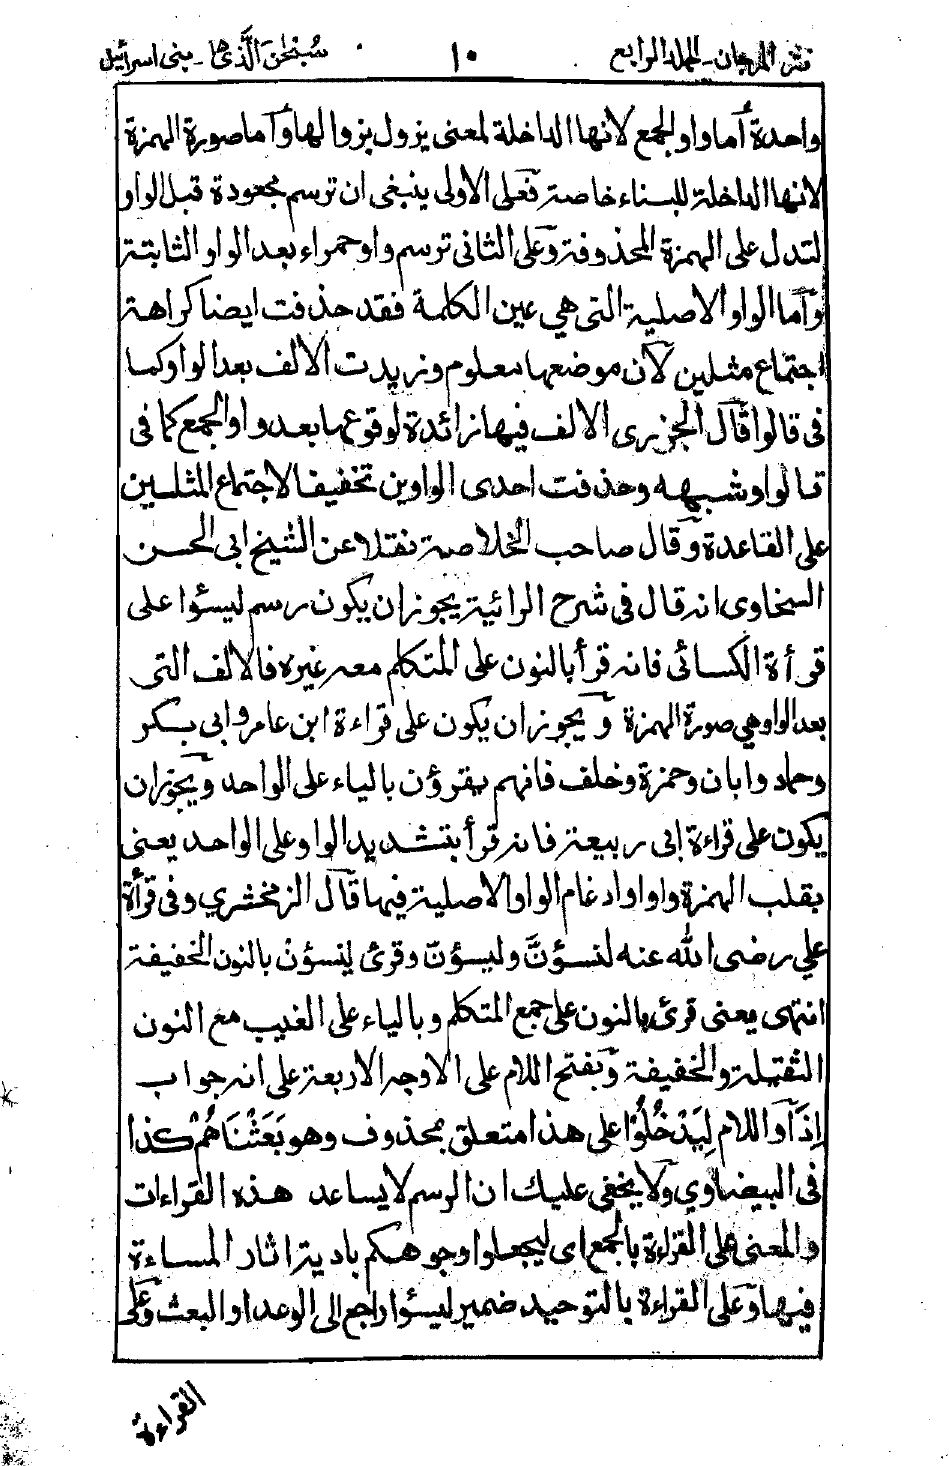 نثر المرجان ـ المجلد الرابع ١٠ سُبْحٰنَ الَّذِي ـ بنی اسرائیل
واحدة أما واو الجمع لانها الداخلة لمعنى يزول بزوالها وأما صورة الهمزة
لانها الداخلة للبناء خاصة فعلى الاولى ينبغى ان ترسم مجعودة قبل الواو
لتدل على الهمزة المحذوفة وعلى الثانى ترسم واو حمراء بعد الواو الثابتة
وأما الواو الاصلية التى هي عين الكلمة فقد حذفت ايضا كراهة
اجتماع مثلين لان موضعها معلوم وزيدت الالف بعد الواو كما
فى قالوا قال الجزرى الالف فيها زائدة لوقوعها بعد واو الجمع كما فى
قالوا وشبهه وحذفت احدى الواوين تخفيفا لاجتماع المثلين
على القاعدة وقال صاحب الخلاصة نقلا عن الشيخ ابى الحسن
السخاوى انه قال فى شرح الرائية يجوز ان يكون رسم ليسئوا على
قرأة الكسائى فانه قرأ بالنون على المتكلم معه غيره فالالف التى
بعد الواو هي صورة الهمزة ويجوز ان يكون على قراءة ابن عامر وابى بكر
وحماد وابان وحمزة وخلف فانهم يقرؤن بالياء على الواحد ويجوز ان
يكون على قراءة ابى ربيعة فانه قرأ بتشديد الواو على الواحد يعنى
بقلب الهمزة واوا وادغام الواو الاصلية فيها قال الزمخشري وفى قرأة
علي رضى الله عنه لنسؤنَّ وليسؤنّ وقرئ لنسؤنْ بالنون الخفيفة
انتهى يعنى قرئ بالنون على جمع المتكلم وبالياء على الغيب مع النون
الثقيلة والخفيفة وبفتح اللام على الاوجه الاربعة على انه جواب
اِذَا واللام لِيَدْخُلُوْا على هذا متعلق بمحذوف وهو بَعَثْنَاهُمْ كذا
فى البيضاوي ولا يخفى عليك ان الرسم لا يساعد هذه القراءات
والمعنى على القراءة بالجمع اى ليجعلوا وجوهكم بادية اثار المساءة
فيها وعلى القراءة بالتوحيد ضمير ليسئوا راجع الى الوعد او البعث وعلى
القراءة